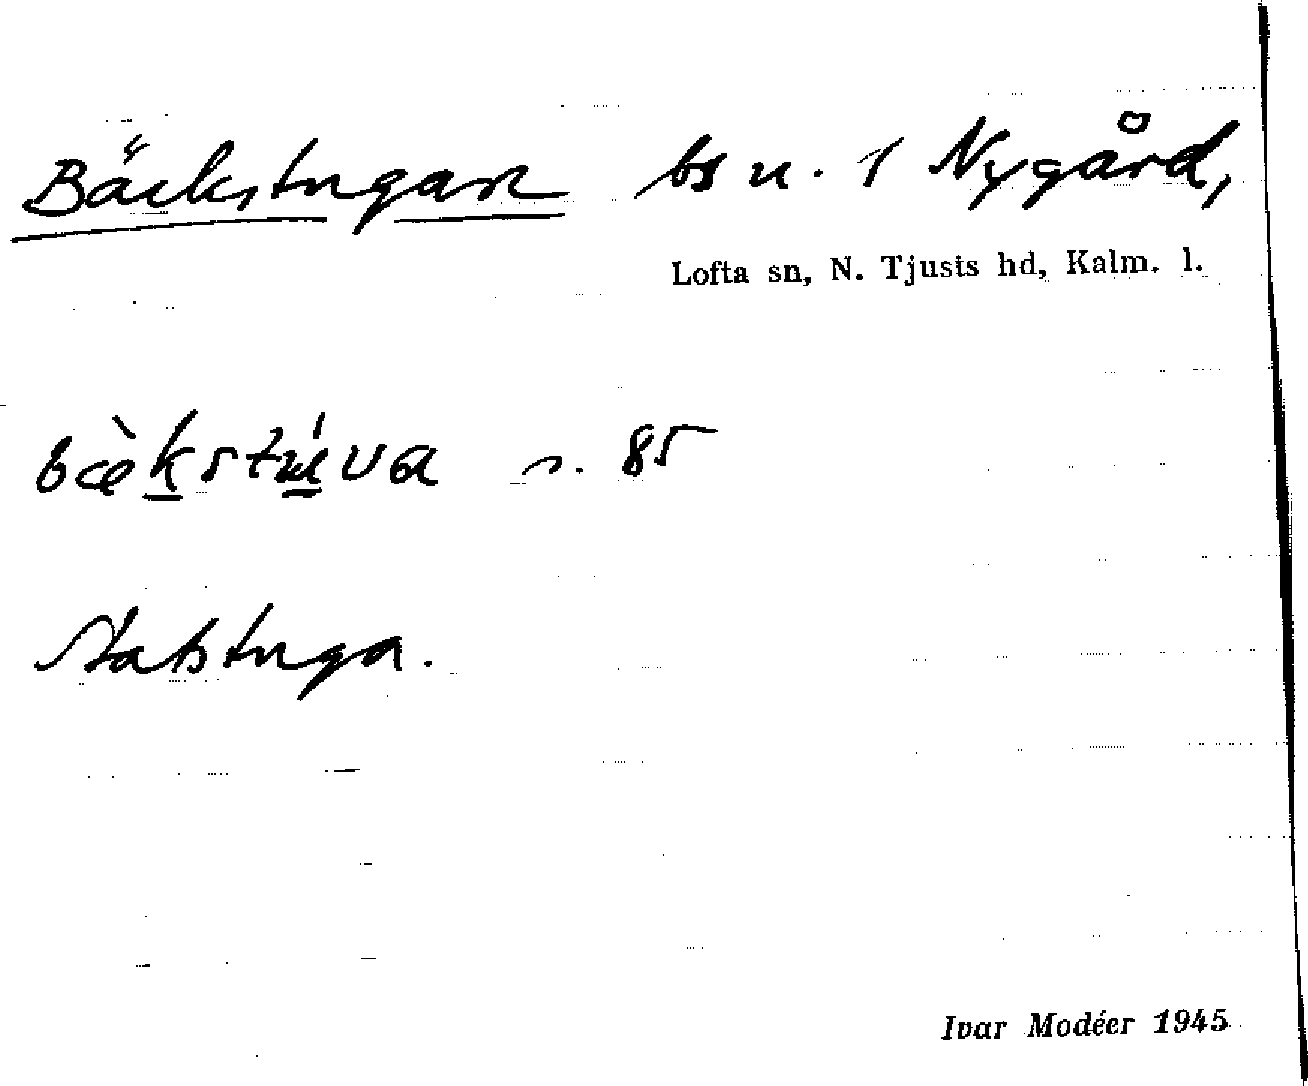 Bäckstugan bs u. 1 Nygård,
Lofta sn, N. Tjusts hd, Kalm. l.
bæ̀kstúva s. 85
Statstuga.
Ivar Modéer 1945